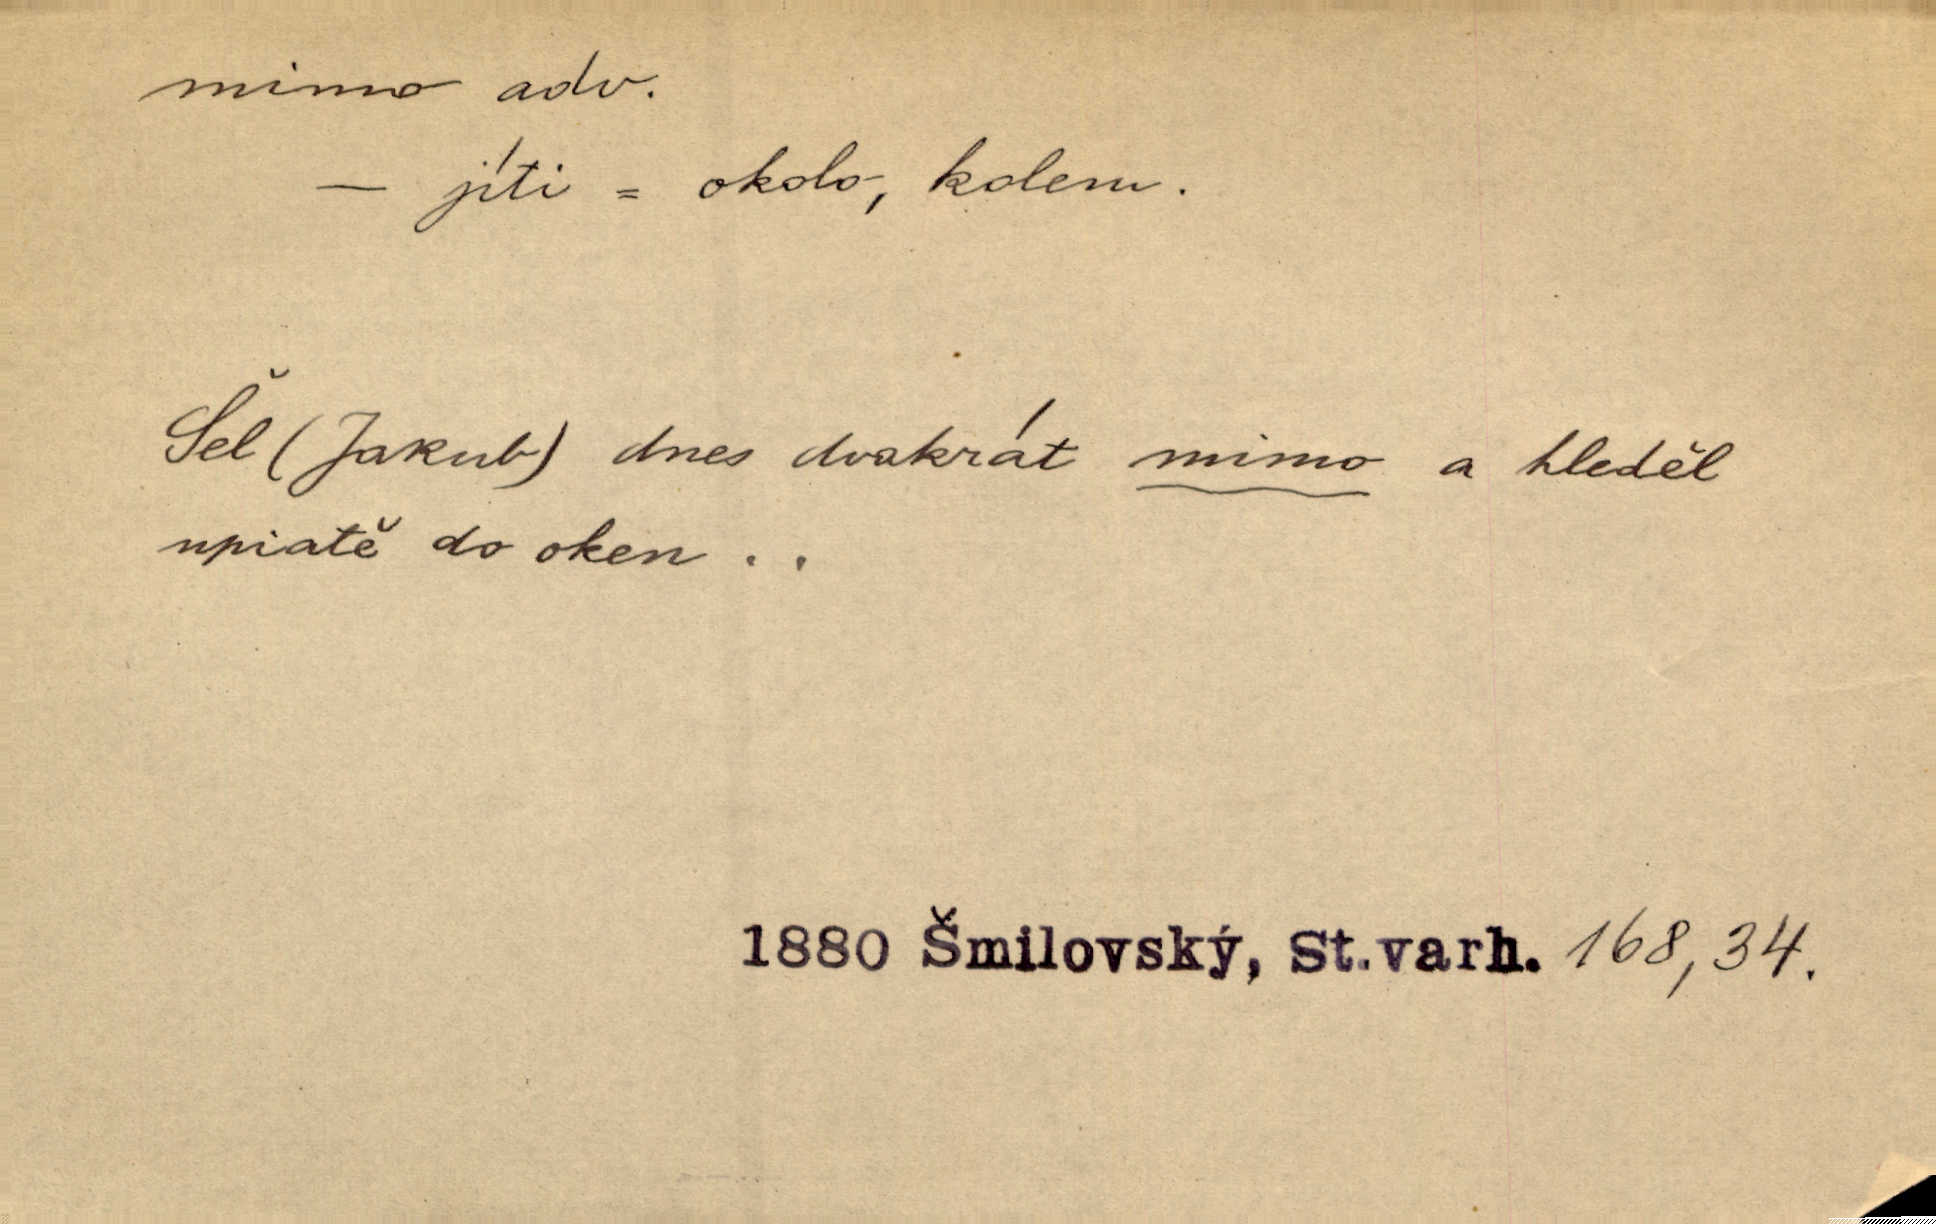 mimo adv.
— jíti = okolo, kolem.
Šel (Jakub) dnes dvakrát mimo a hleděl
upiatě do oken . .
1880 Šmilovský, St.varh. 168,34.